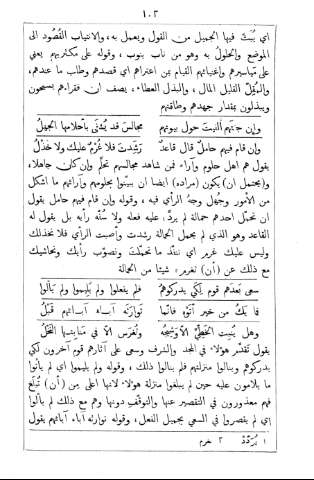 ١٠٢
اى يُبَثّ فيها الجميل من القول ويعمل به، والانتياب القُصود الى
الموضع والحلول به وهو من ناب ينوب، وقوله على مكثريهم يعنى
على مياسيرهم واغنيائهم القيام بمن اعتراهم اى قصدهم وطلب ما عندهم،
والمُقِلّ القليل المال، والبذل العطاء، يصف ان فقراءهم يسمحون
ويبذلون بمقدار جهدهم وطاقتهم
وإن جئتَهم ألفيتَ حولَ بيوتهم مجالسَ قد يُشفَى بأحلامها الجهلُ
وإن قام فيهم حاملٌ قال قاعدٌ رشدتَ فلا غُرْمٌ عليك ولا خَذْلُ
يقول هم اهل حلوم وآراء فمن شاهد مجالسهم تحلّم وإن كان جاهلا،
و(يحتمل ان) يكون (مراده) ايضا ان يبيّنوا بحلومهم وآرائهم ما اشكل
من الأمور وجُهل وجهُ الرأى فيه، وقوله وإن قام فيهم حامل يقول
ان تحمّل احدهم حمالة لم يردّ عليه فعله ولا سُفّه رأيه بل يقول له
القاعد وهو الذى لم يحمل الحمالة رشدت وأصبت الرأى فلا نخذلك
وليس عليك غرم اى ننفّذ ما تحمّلتَ ونصوّب رأيك ونحاشيك
مع ذلك عن (أن) تغرم٢ شيئا من الحمالة
سعى بعدَهم قوم لكى يدركوهمُ فلم يفعلوا ولم يُليموا ولم يألوا
فما يكُ من خير أتَوْه فانّما توارثه آباءُ آبائهم قَبْلُ
وهل يُنبِت الخَطّىَّ الّا وشيجُه وتُغرَس الّا فى منابِتها النخلُ
يقول تقدّم هؤلاء فى المجد والشرف وسعى على آثارهم قوم آخرون لكى
يدركوهم وينالوا منزلتهم فلم ينالوا ذلك، وقوله ولم يليموا اى لم يأتوا
ما يلامون عليه حين لم يبلغوا منزلة هؤلاء لانها اعلى من (أن) تُبلغ
فهم معذورون فى التقصير عنها والتوقّف دونها وهم مع ذلك لم يألوا
اى لم يقصروا فى السعى بجميل الفعل، وقوله توارثه آباء آبائهم يقول
١ يُرْدَد ٢ غرم